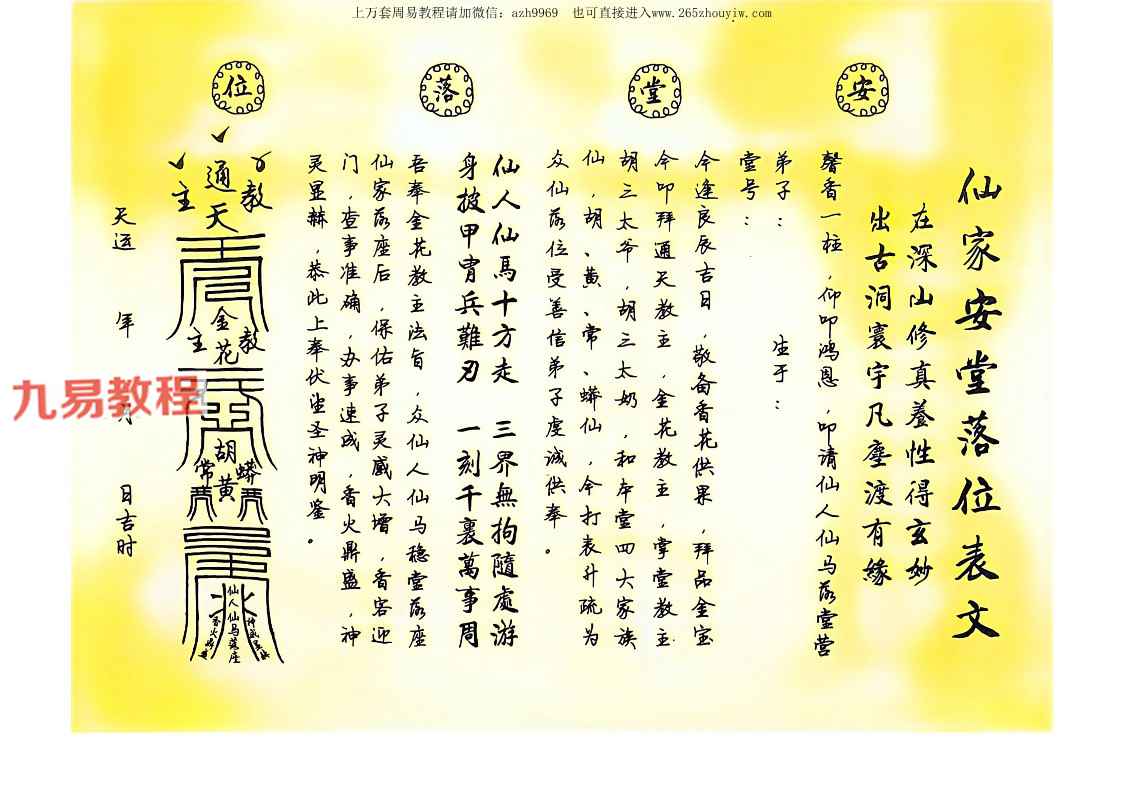 上万套周易教程请加微信：azh9969　也可直接进入www.265zhouyiw.com
安堂落位
仙家安堂落位表文
在深山修真養性得玄妙
出古洞寰宇凡塵渡有緣
馨香一柱，仰叩鸿恩，叩请仙人仙马落堂营
弟子：　生于：
堂号：
今逢良辰吉日，敬备香花供果，拜品金宝
今叩拜通天教主，金花教主，掌堂教主
胡三太爷，胡三太奶，和本堂四大家族
仙，胡、黄、常、蟒仙，今打表升疏为
众仙落位受善信弟子虔诚供奉。
仙人仙馬十方走　三界無拘隨處游
身披甲胄兵難刃　一刻千裏萬事周
吾奉金花教主法旨，众仙人仙马稳堂落座
仙家落座后，保佑弟子灵感大增，香客迎
门，查事准确，办事速成，香火鼎盛，神
灵显赫，恭此上奉伏望圣神明鉴。
通天教主
金花教主
胡黄常蟒
仙人仙马落座
天运　年　月　日吉时
九易教程